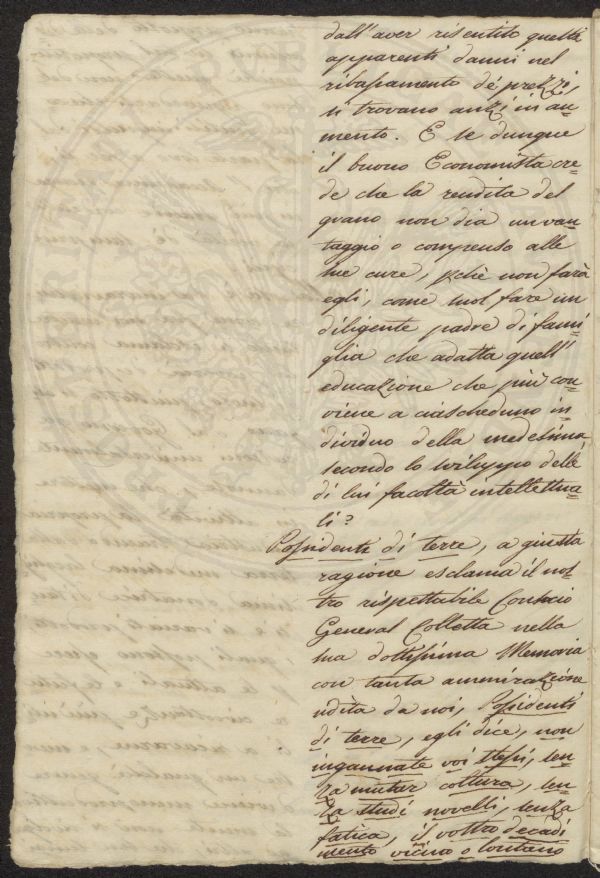 dall'aver risentito questi
apparenti danni nel
ribassamento de' prezzi,
si trovano anzi in au=
mento. E se dunque
il buono Economista cre=
de che la rendita del
grano non dia un van=
taggio o compenso alle
sue cure, pchè non farà
egli, come suol fare un
diligente padre di fami=
glia che adatta quell'
educazione che più con=
viene a ciascheduno in=
dividuo della medesima,
secondo lo sviluppo delle
di lui facoltà intellettua=
li?
Possidenti di terre, a giusta
ragione esclama il nos=
tro rispettabile Consocio
General Colletta nella
sua dottissima Memoria
con tanta ammirazione
udita da noi, Possidenti
di terre, egli dice, non
ingannate voi stessi, sen=
za mutar coltura, sen=
za studi novelli, senza
fatica, il vostro decadi
mento vicino o lontano